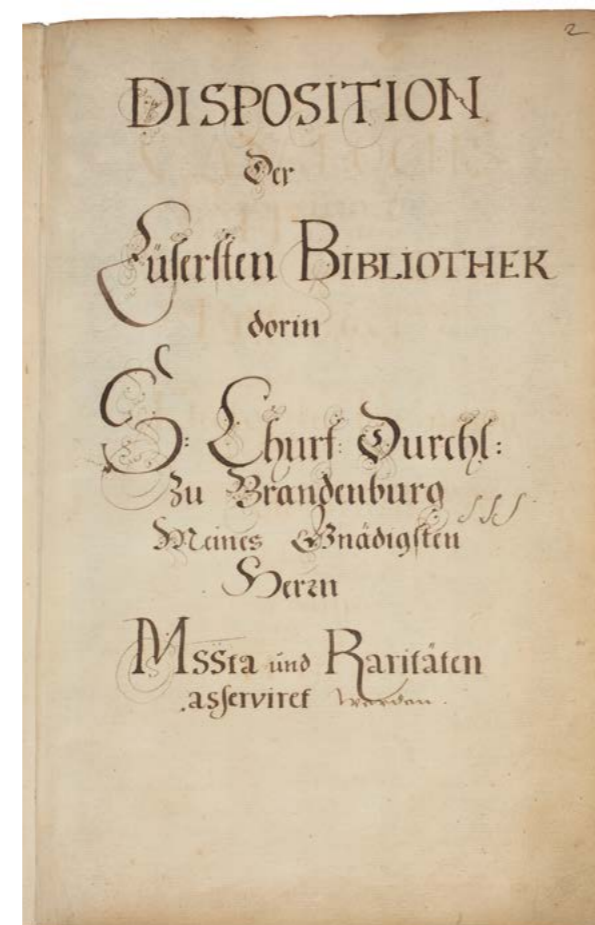 2
DISPOSITION
Der
Eüsersten BIBLIOTHEK
dorin
S: Churf: Durchl:
zu Brandenburg
Meines Gnädigsten
Herrn
MSSta und Raritäten
asserviret werden.